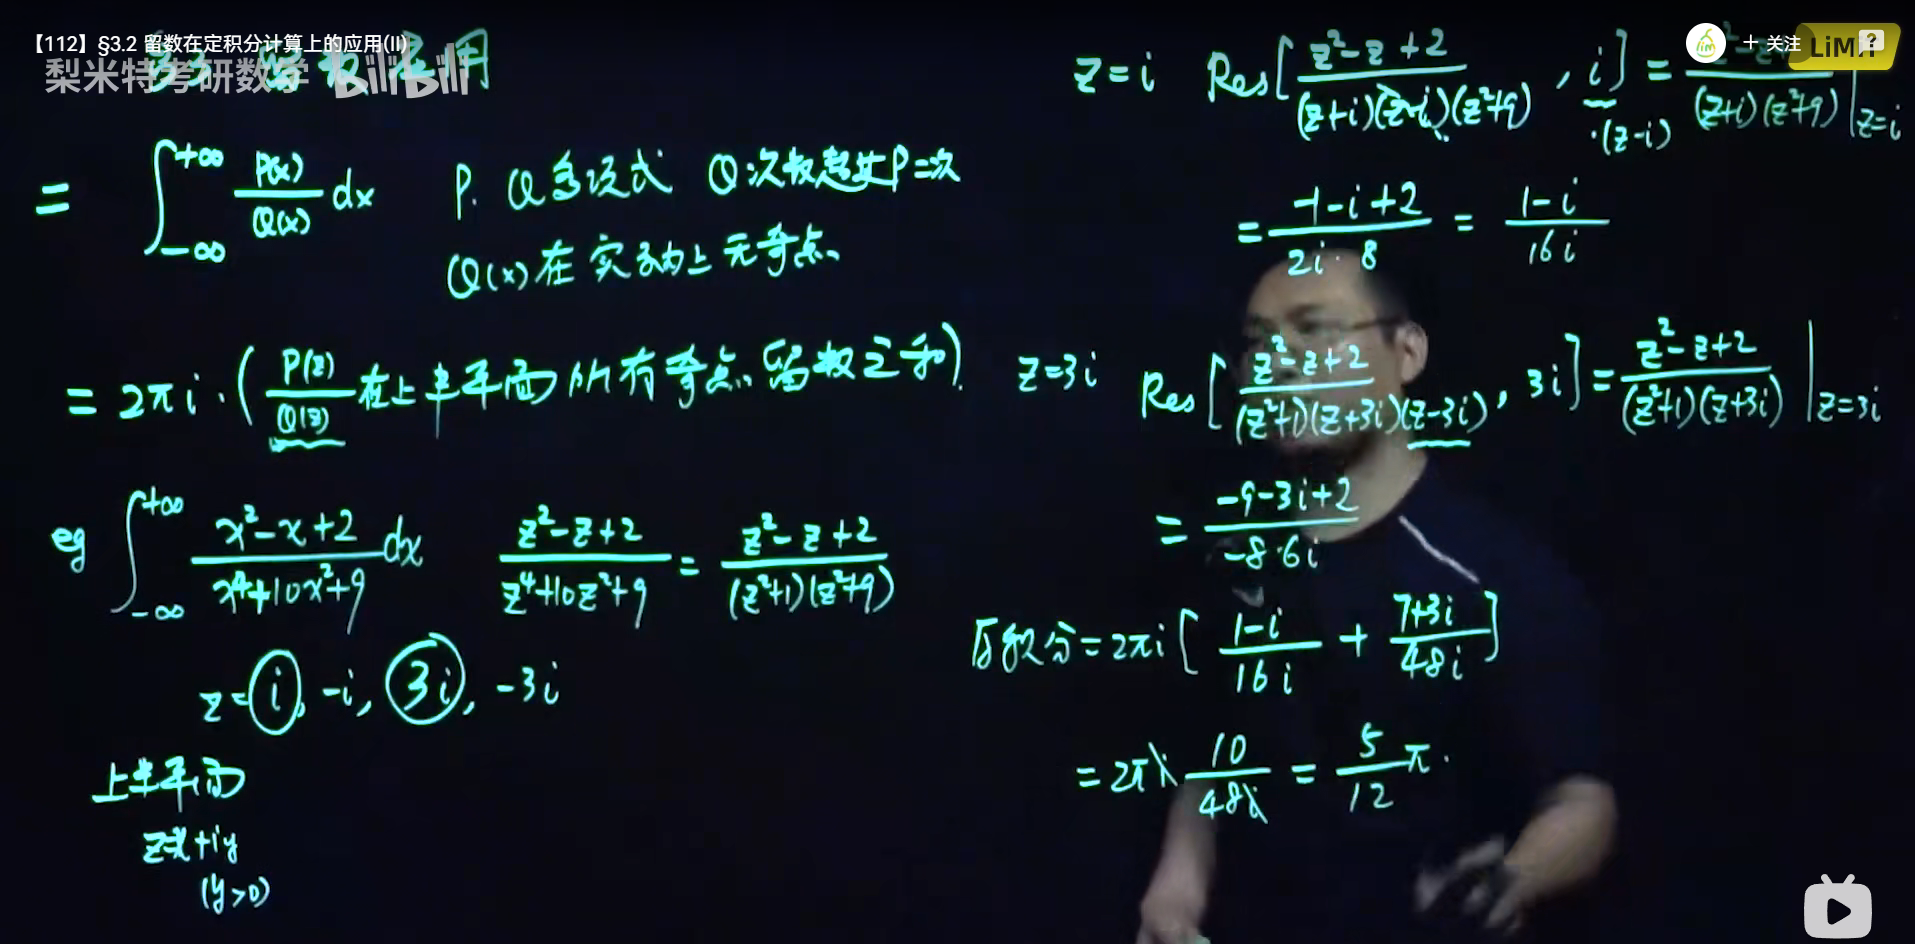 【112】§3.2 留数在定积分计算上的应用(II)
梨米特考研数学 bilibili
+ 关注
LiMiT
用
= ∫_{-∞}^{+∞} P(x)/Q(x) dx P. Q多项式 Q次数超过P二次
Q(x)在实轴上无奇点
= 2πi·(P(z)/Q(z) 在上半平面所有奇点留数之和).
eg ∫_{-∞}^{+∞} (x²-x+2)/(x⁴+10x²+9) dx (z²-z+2)/(z⁴+10z²+9) = (z²-z+2)/((z²+1)(z²+9))
z=i, -i, 3i, -3i
上半平面
z=x+iy
(y>0)
z=i Res[(z²-z+2)/((z+i)(z-i)(z²+9)), i] = (z²-z+2)/((z+i)(z²+9))|z=i
·(z-i)
= (-1-i+2)/(2i·8) = (1-i)/(16i)
z=3i Res[(z²-z+2)/((z²+1)(z+3i)(z-3i)), 3i] = (z²-z+2)/((z²+1)(z+3i))|z=3i
= (-9-3i+2)/(-8·6i)
原积分=2πi[(1-i)/(16i) + (7+3i)/(48i)]
=2πi 10/(48i) = 5/12 π.